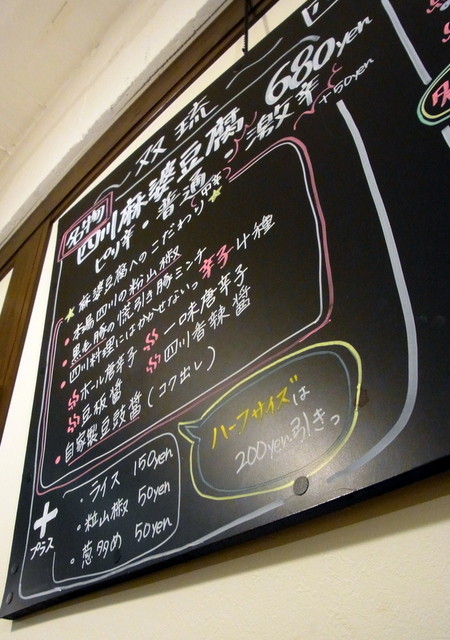 双琉
名物 四川麻婆豆腐 680yen
ピリ辛・普通・激辛 +50yen
麻婆豆腐へのこだわり
・本場四川の粒山椒
・黒豚の荒引き豚ミンチ
・四川料理にはかかせないっ 辛子4種
ホール唐辛子 一味唐辛子
豆板醤 四川香辣醤
・自家製豆豉醤(コク出し)
+プラス
・ライス 150yen
・粒山椒 50yen
・葱多め 50yen
ハーフサイズは
200yen引きっ